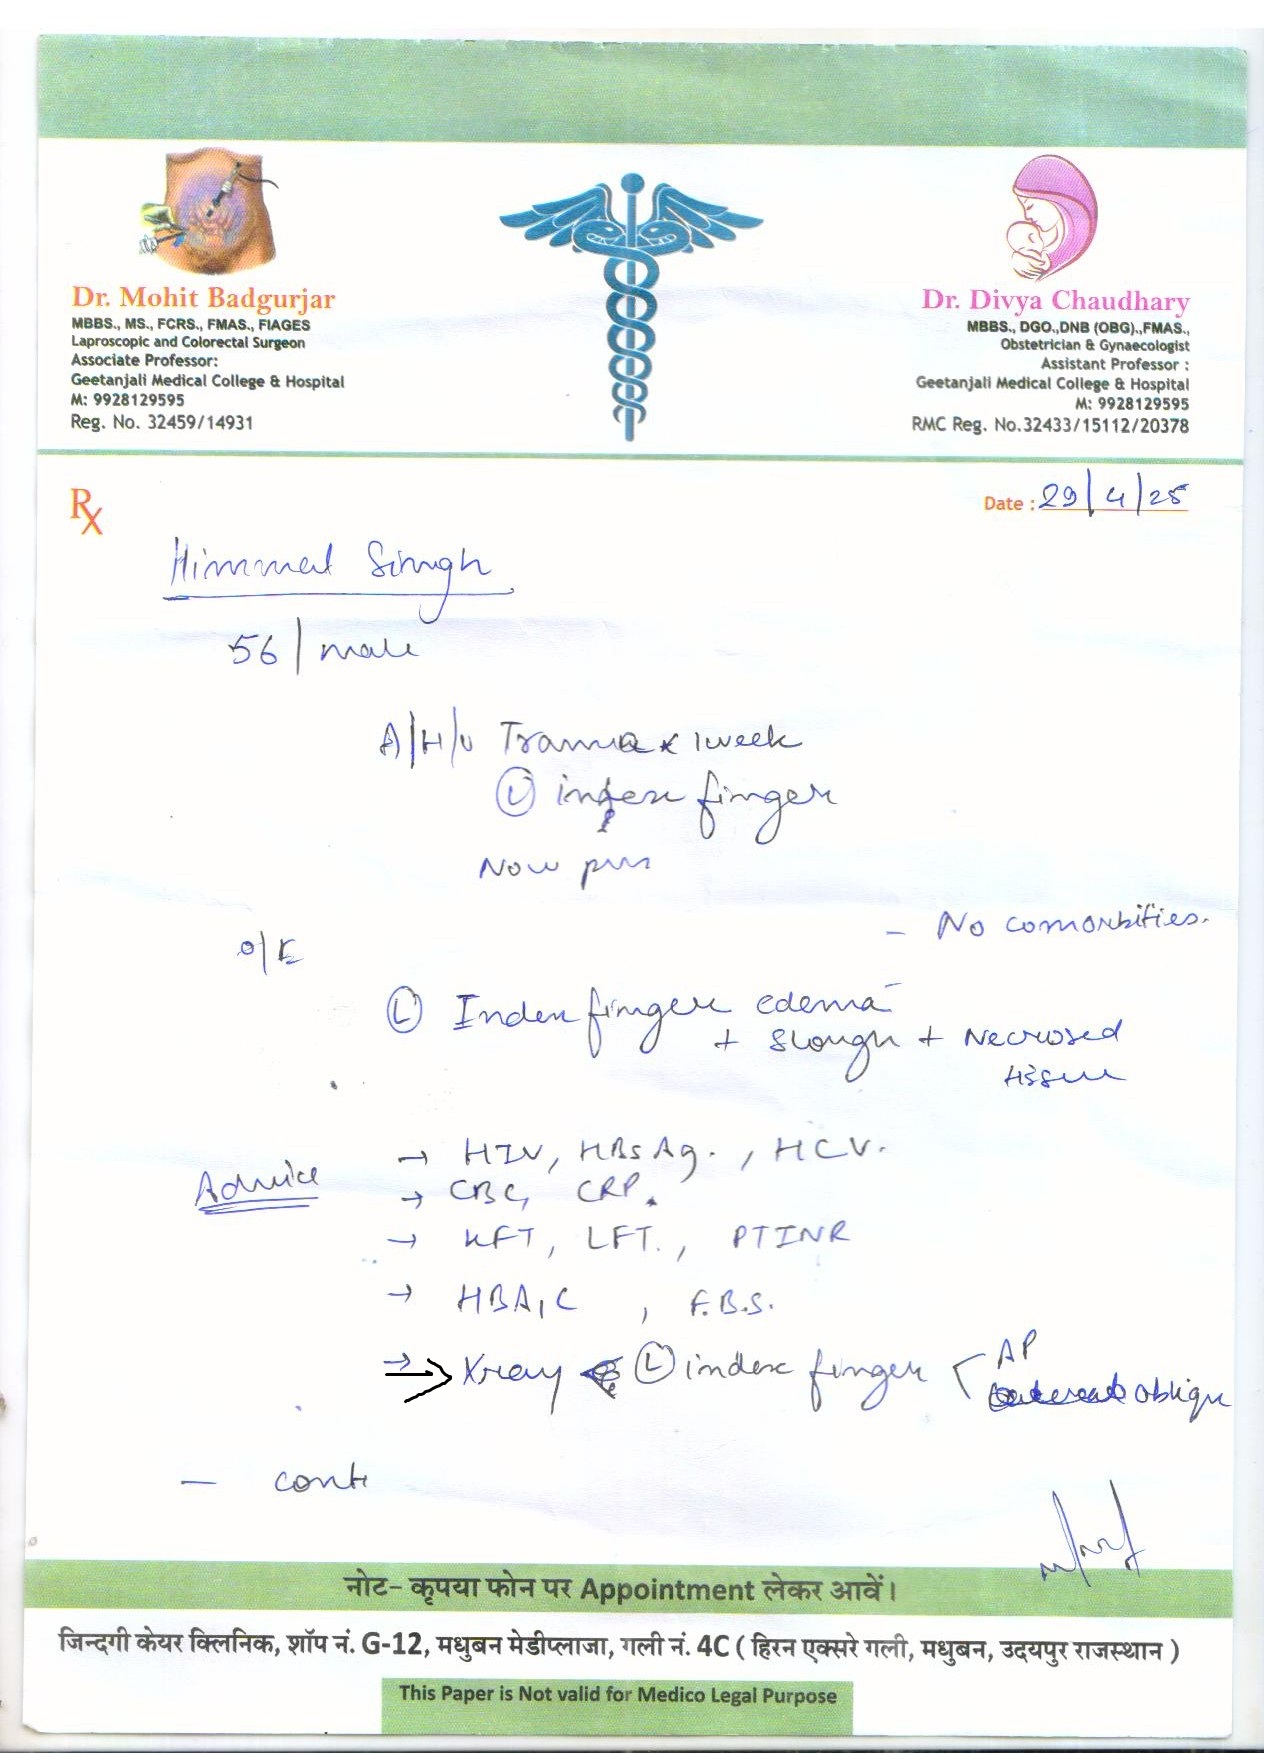 Dr. Mohit Badgurjar
MBBS., MS., FCRS., FMAS., FIAGES
Laproscopic and Colorectal Surgeon
Associate Professor:
Geetanjali Medical College & Hospital
M: 9928129595
Reg. No. 32459/14931
Dr. Divya Chaudhary
MBBS., DGO.,DNB (OBG).,FMAS.,
Obstetrician & Gynaecologist
Assistant Professor :
Geetanjali Medical College & Hospital
M: 9928129595
RMC Reg. No.32433/15112/20378
Rx
Date : 29/4/25
Himmat Singh
56/male
A/H/o Trauma x 1week
(L) index finger
Now pus
- No comorbities.
O/E
(L) Index finger edema
+ Slough + Necrosed
tissue
Advice
→ HIV, HBsAg. , HCV.
→ CBC, CRP.
→ KFT, LFT., PTINR
→ HBA1C , F.B.S.
⇒ Xray (L) index finger < AP
oblique
- cont
नोट- कृपया फोन पर Appointment लेकर आवें।
जिन्दगी केयर क्लिनिक, शॉप नं. G-12, मधुबन मेडीप्लाजा, गली नं. 4C ( हिरन एक्सरे गली, मधुबन, उदयपुर राजस्थान )
This Paper is Not valid for Medico Legal Purpose